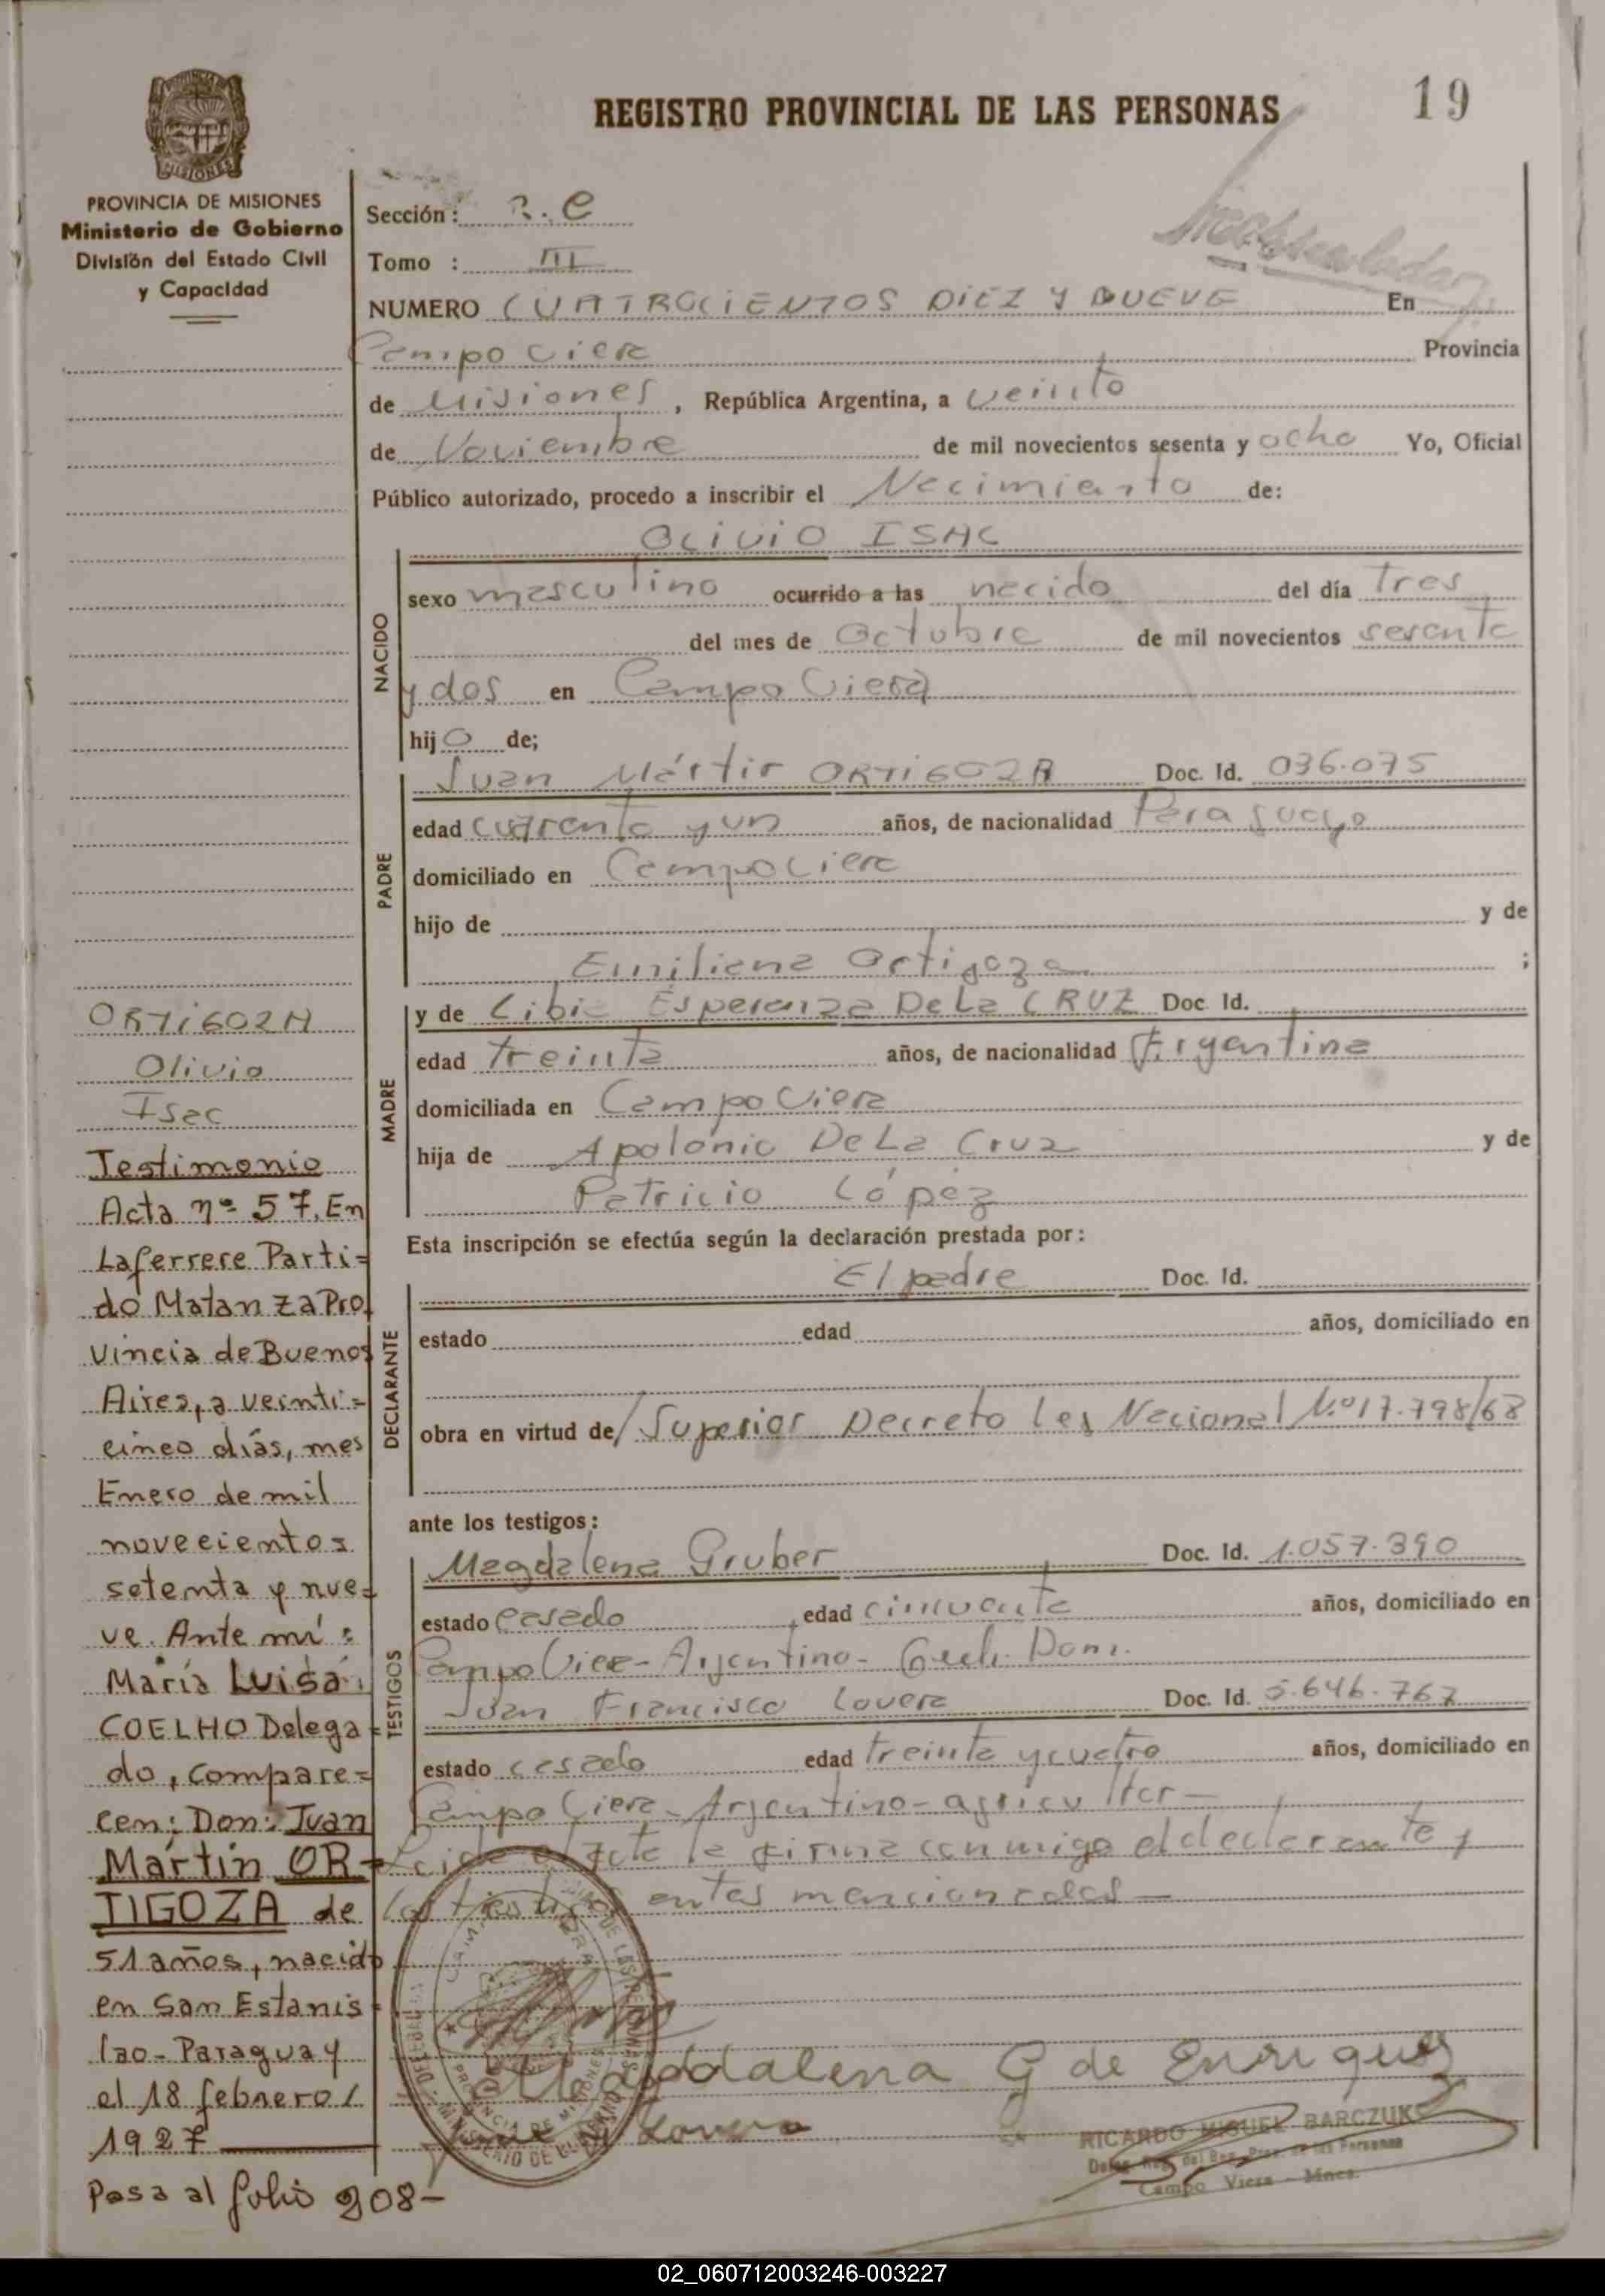 REGISTRO PROVINCIAL DE LAS PERSONAS
19
PROVINCIA DE MISIONES
Ministerio de Gobierno
División del Estado Civil
y Capacidad
Sección: R.C
Tomo : III
NUMERO CUATROCIENTOS DIEZ Y NUEVE En
Campo Viera Provincia
de Misiones, República Argentina, a veinte
de Noviembre de mil novecientos sesenta y ocho Yo, Oficial
Público autorizado, procedo a inscribir el Nacimiento de:
OLIVIO ISAC
NACIDO
sexo masculino ocurrido a las nacido del día tres
del mes de Octubre de mil novecientos sesenta
y dos en Campo Viera
hijo de;
PADRE
Juan Mártir ORTIGOZA Doc. Id. 036.075
edad cuarenta y un años, de nacionalidad Paraguayo
domiciliado en Campo Viera
hijo de y de
Emiliana Ortigoza ;
MADRE
y de Libia Esperanza De La CRUZ Doc. Id.
edad treinta años, de nacionalidad Argentina
domiciliada en Campo Viera
hija de Apolonio De La Cruz y de
Patricio López
Esta inscripción se efectúa según la declaración prestada por:
DECLARANTE
El padre Doc. Id.
estado edad años, domiciliado en
obra en virtud de/ Superior Decreto Ley Nacional N.º 17.798/68
ante los testigos:
TESTIGOS
Magdalena Gruber Doc. Id. 1.057.390
estado casado, edad cincuenta años, domiciliado en
Campo Viera - Argentino - Dom.
Juan Francisco Lovera Doc. Id. 5.646.767
estado casado edad treinta y cuatro años, domiciliado en
Campo Viera - Argentino - agricultor -
Leida el acta la firma conmigo el declarante y
los testigos antes mencionados -
Magdalena G de Enriquez
Lovera
RICARDO MIGUEL BARCZUK
Deleg. Reg. del Reg. Prov. de las Personas
Campo Viera - Mnes.
ORTIGOZA
Olivio
Isac
Testimonio
Acta nº 57. En
Laferrere Parti=
do Matanza Pro
vincia de Buenos
Aires, a veinti=
cinco días, mes
Enero de mil
novecientos
setenta y nue=
ve. Ante mí:
María Luisa
COELHO Delega=
do, compare=
cen: Don: Juan
Martín OR=
TIGOZA de
51 años, nacido
en San Estanis=
lao - Paraguay
el 18 febrero/
1927
Pasa al folio 208-
02_060712003246-003227